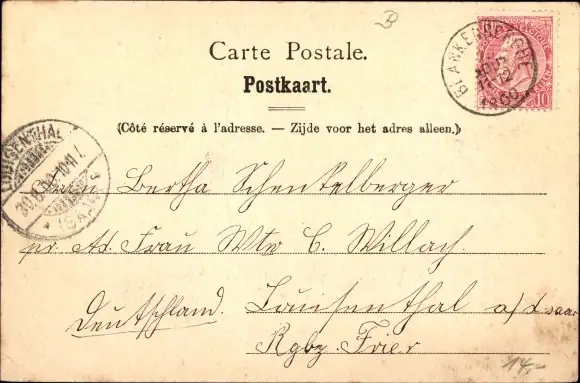 Carte Postale.
Postkaart.
(Côté réservé à l'adresse. — Zijde voor het adres alleen.)
BLANKENBERGHE
10
LOUISENTHAL
Bertha Schenkelberger
pr. Ad. Frau Wtw C. Willach.
Deutschland. Louisenthal a/d saar
Rgbz. Trier
14,-